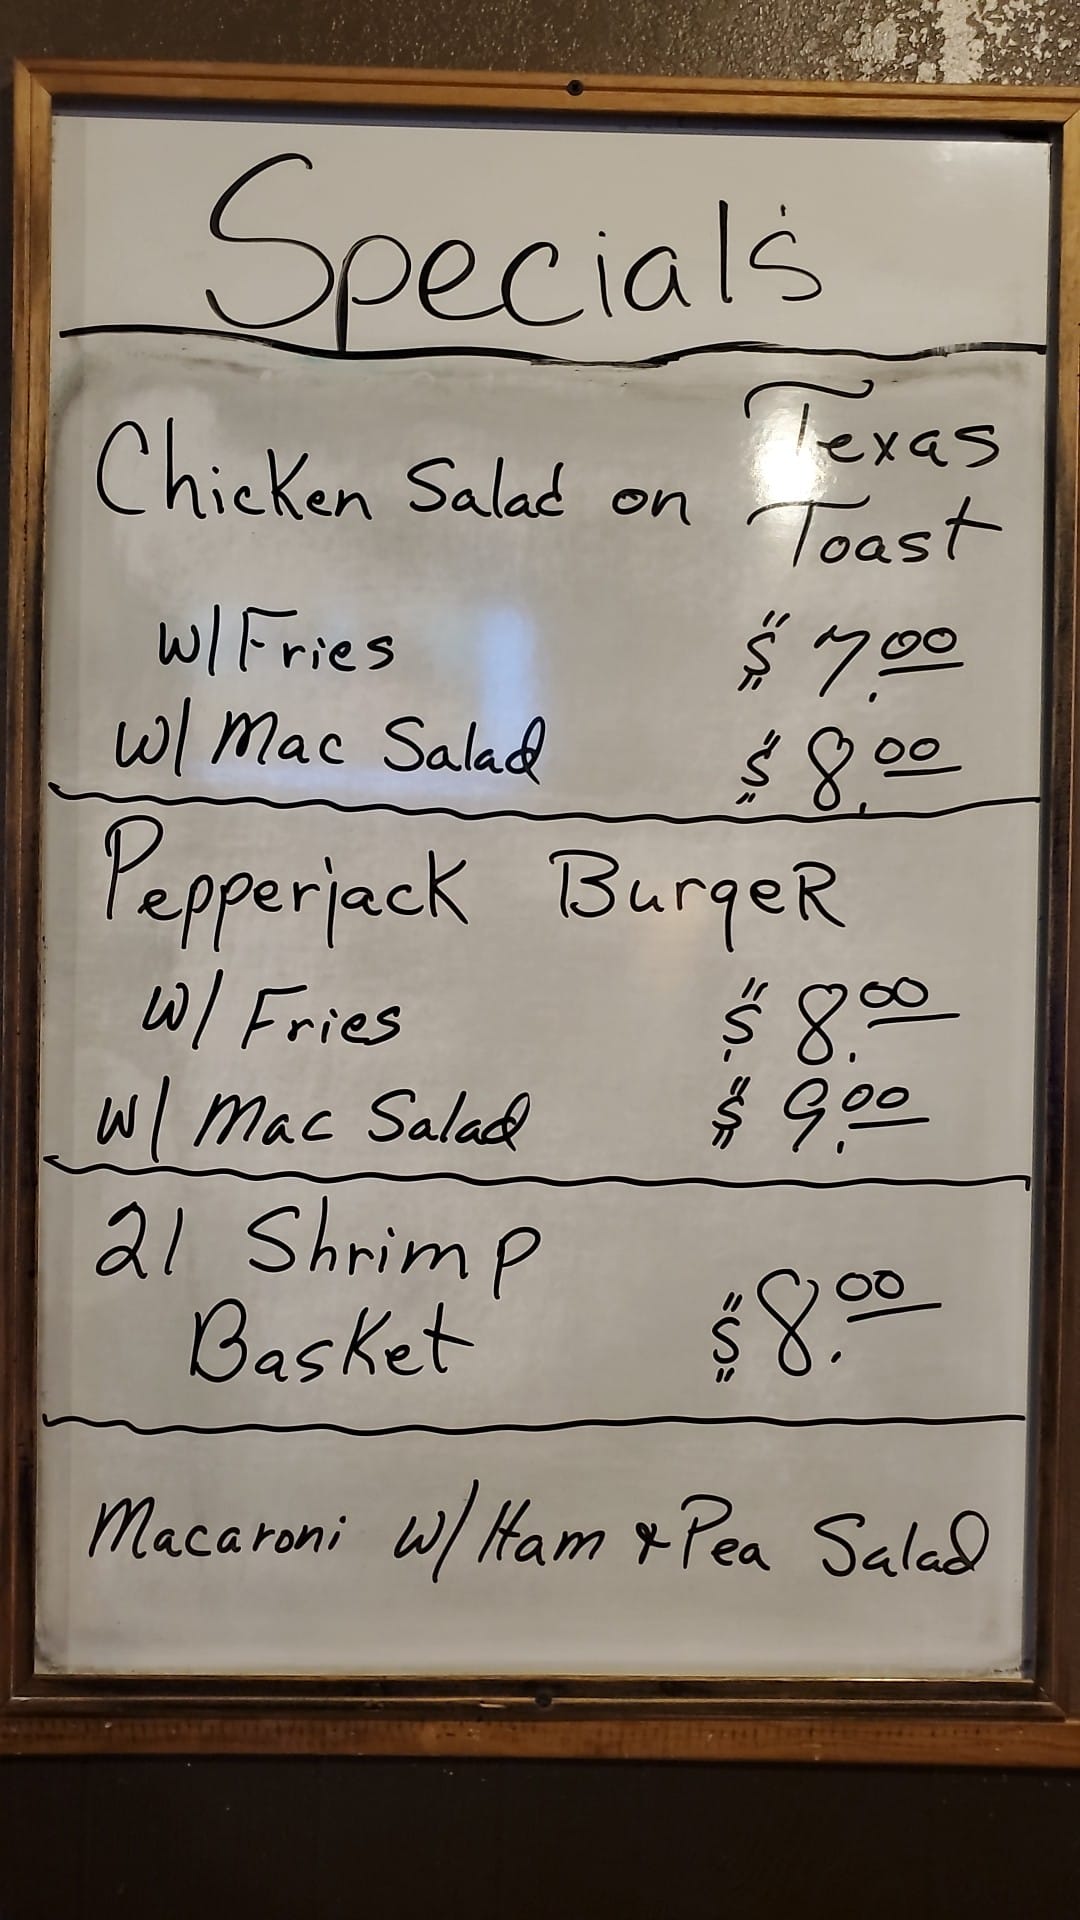 Specials
Chicken Salad on Texas Toast
w/ Fries $7.00
w/ Mac Salad $8.00
Pepperjack BurgeR
w/ Fries $8.00
w/ Mac Salad $9.00
21 Shrimp
Basket $8.00
Macaroni w/ Ham & Pea Salad